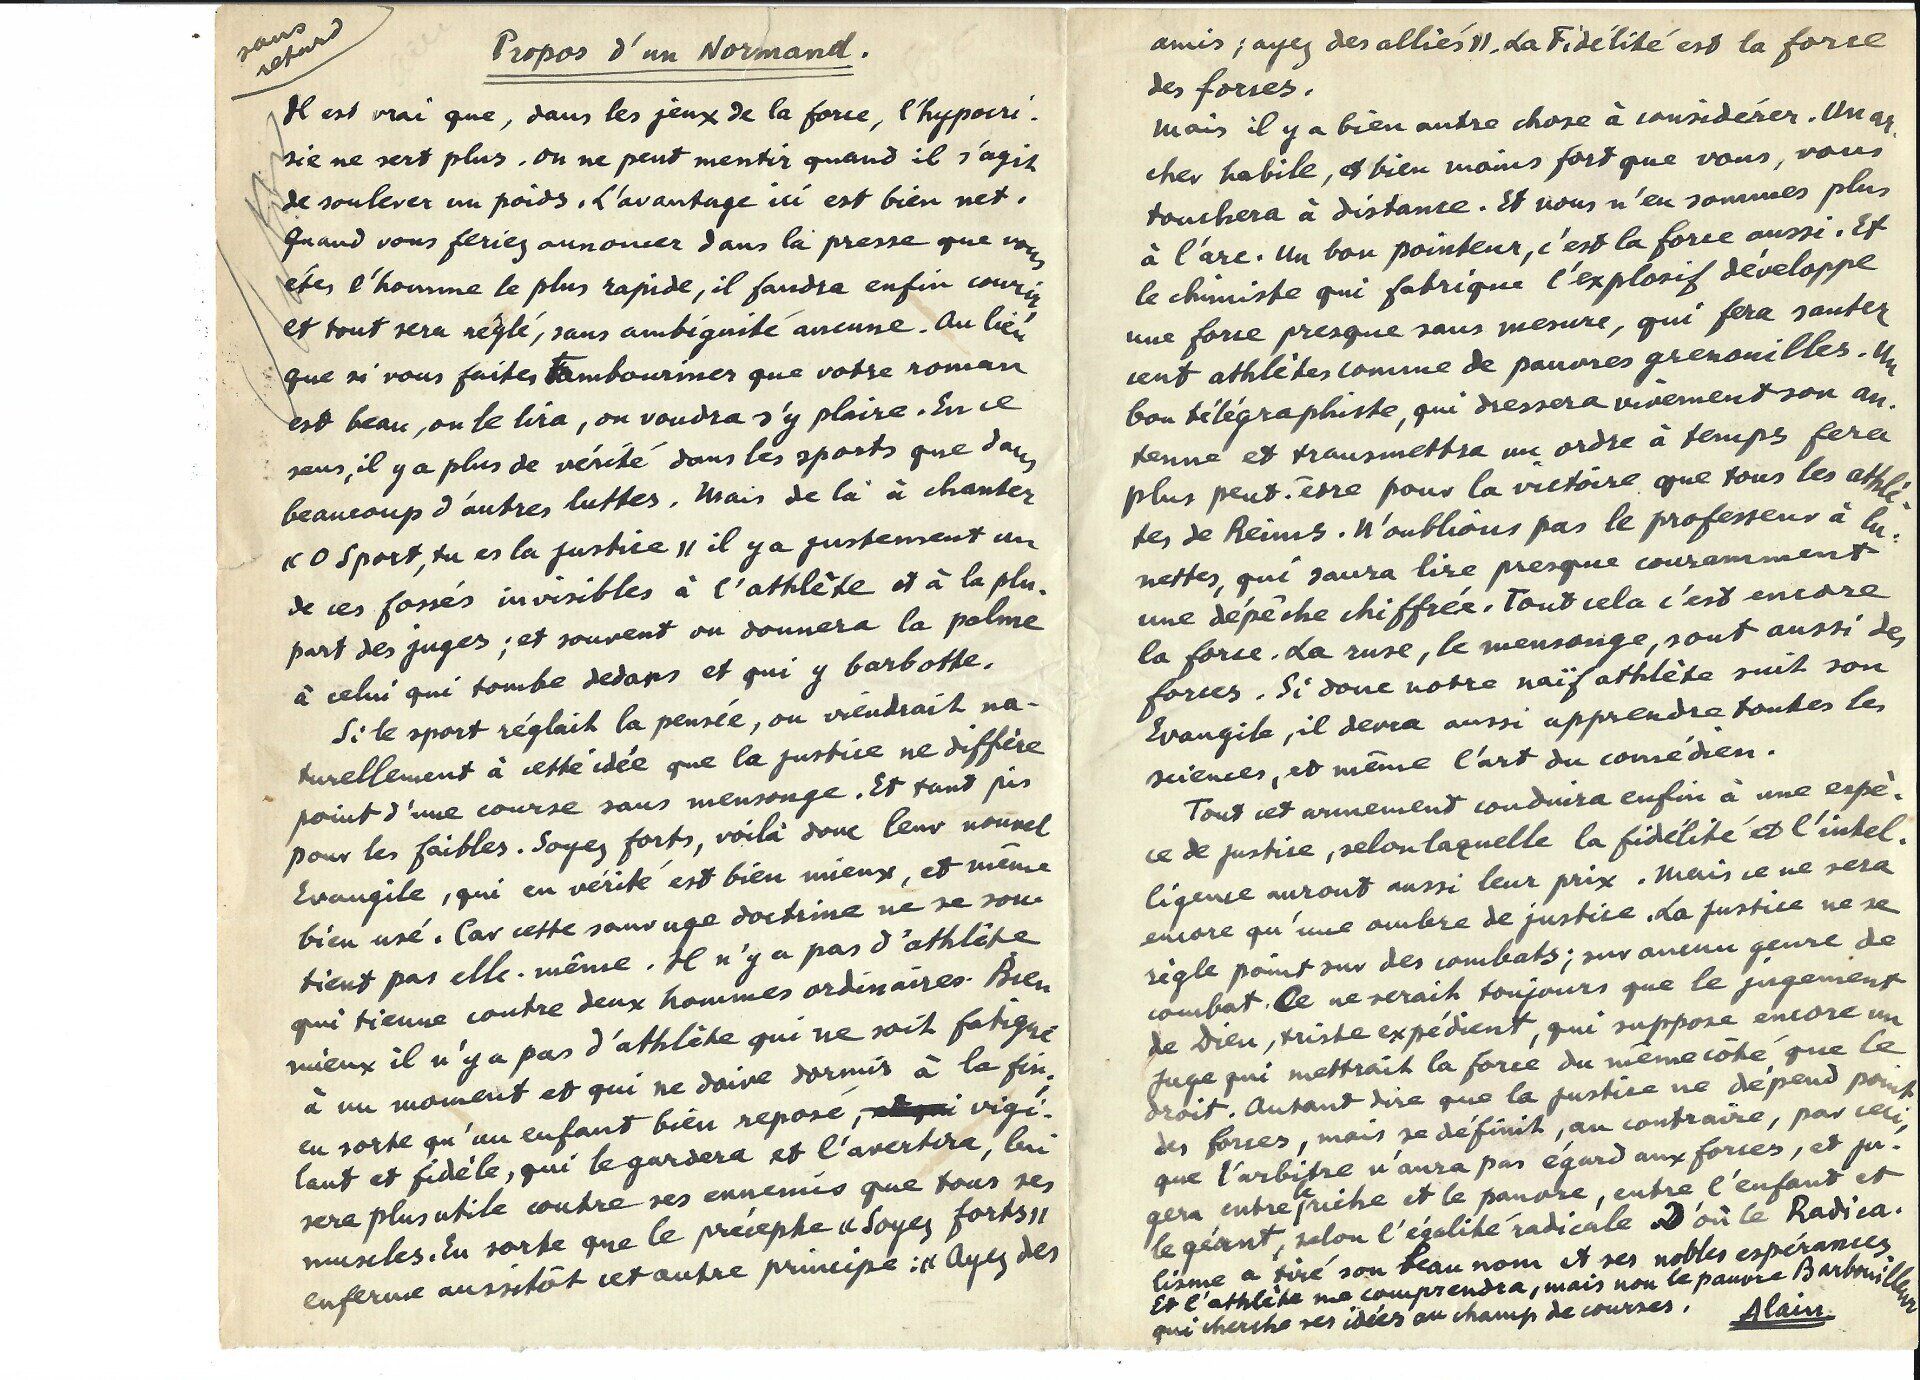 sans
retard
Propos d'un Normand.
Il est vrai que, dans les jeux de la force, l'hypocri-
sie ne sert plus. On ne peut mentir quand il s'agit
de soulever un poids. L'avantage ici est bien net.
Quand vous feriez annoncer dans la presse que vous
êtes l'homme le plus rapide, il faudra enfin courir
et tout sera réglé, sans ambiguité aucune. Au lieu
que si vous faites tambouriner que votre roman
est beau, on le lira, on voudra s'y plaire. En ce
sens, il y a plus de vérité dans les sports que dans
beaucoup d'autres luttes. Mais de là à chanter
« O Sport, tu es la justice » il y a justement un
de ces fossés invisibles à l'athlète et à la plu-
part des juges ; et souvent on donnera la palme
à celui qui tombe dedans et qui y barbotte.
Si le sport réglait la pensée, on viendrait na-
turellement à cette idée que la justice ne diffère
point d'une course sans mensonge. Et tant pis
pour les faibles. Soyez forts, voilà donc leur nouvel
Evangile, qui en vérité est bien mieux, et même
bien usé. Car cette sauvage doctrine ne se sou-
tient pas elle-même. Il n'y a pas d'athlète
qui tienne contre deux hommes ordinaires. Bien
mieux il n'y a pas d'athlète qui ne soit fatigué
à un moment et qui ne doive dormir à la fin,
en sorte qu'un enfant bien reposé, vigi-
lant et fidèle, qui le gardera et l'avertira, lui
sera plus utile contre ses ennemis que tous ses
muscles. En sorte que le précepte « Soyez forts »
enferme aussitôt cet autre principe : « Ayez des
amis ; ayez des alliés ». La Fidélité est la force
des forces.
Mais il y a bien autre chose à considérer. Un ar-
cher habile, et bien moins fort que vous, vous
touchera à distance. Et nous n'en sommes plus
à l'arc. Un bon pointeur, c'est la force aussi. Et
le chimiste qui fabrique l'explosif développe
une force presque sans mesure, qui fera sauter
cent athlètes comme de pauvres grenouilles. Un
bon télégraphiste, qui dressera vivement son an-
tenne et transmettra un ordre à temps fera
plus peut-être pour la victoire que tous les athlè-
tes de Reims. N'oublions pas le professeur à lu-
nettes, qui saura lire presque couramment
une dépêche chiffrée. Tout cela c'est encore
la force. La ruse, le mensonge, sont aussi des
forces. Si donc notre naïf athlète suit son
Evangile, il devra aussi apprendre toutes les
sciences, et même l'art du comédien.
Tout cet armement conduira enfin à une espè-
ce de justice, selon laquelle la fidélité et l'intel-
ligence auront aussi leur prix. Mais ce ne sera
encore qu'une ombre de justice. La justice ne se
règle point sur des combats ; sur aucun genre de
combat. Ce ne serait toujours que le jugement
de Dieu, triste expédient, qui suppose encore un
juge qui mettrait la force du même côté que le
droit. Autant dire que la justice ne dépend point
des forces, mais se définit, au contraire, par ceci,
que l'arbitre n'aura pas égard aux forces, et ju-
gera entre le riche et le pauvre, entre l'enfant et
le géant, selon l'égalité radicale. D'où le Radica-
lisme a tiré son beau nom et ses nobles espérances.
Et l'athlète me comprendra, mais non le pauvre Barbouilleur
qui cherche ses idées au champ de courses.
Alain